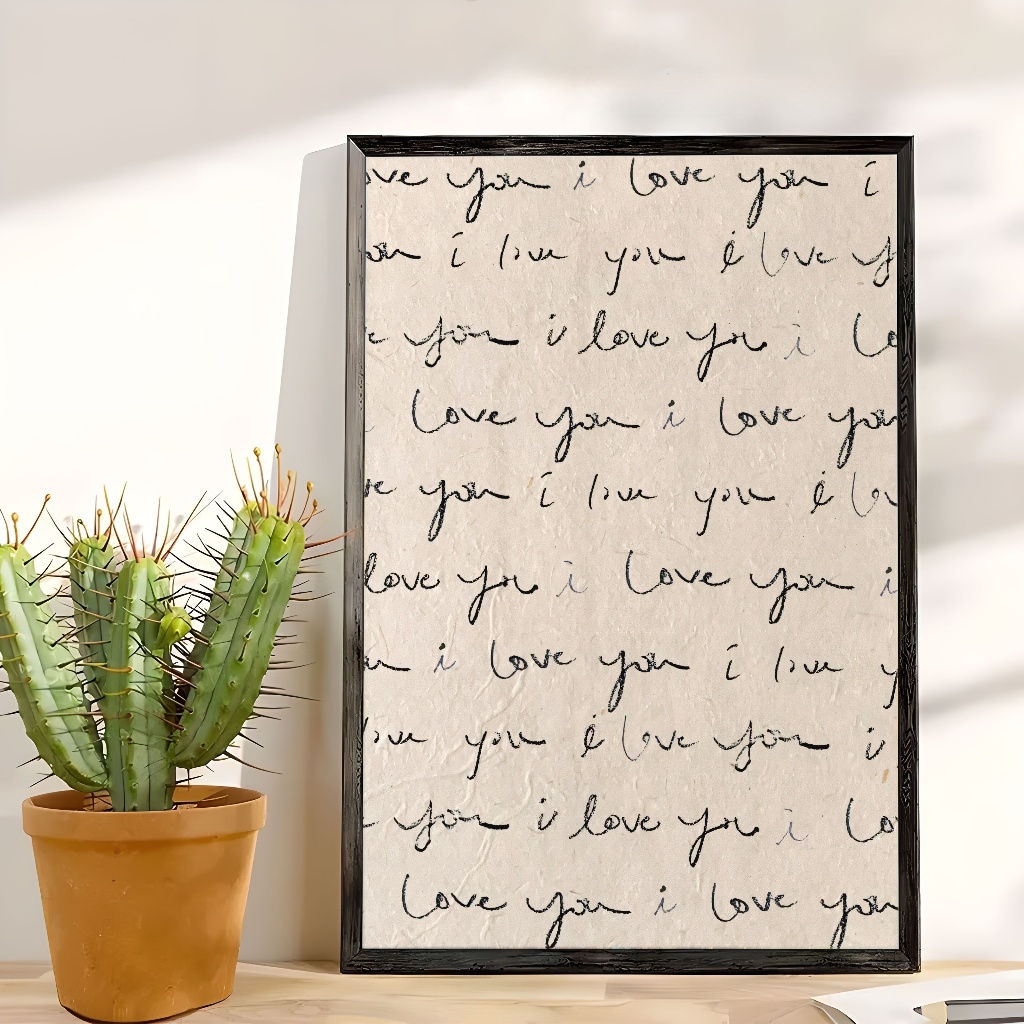 ove you i love you i
ou i love you i love y
e you i love you i lo
love you i love you
ve you i love you i lov
love you i love you i
u i love you i love y
ove you i love you i
you i love you i lo
love you i love you